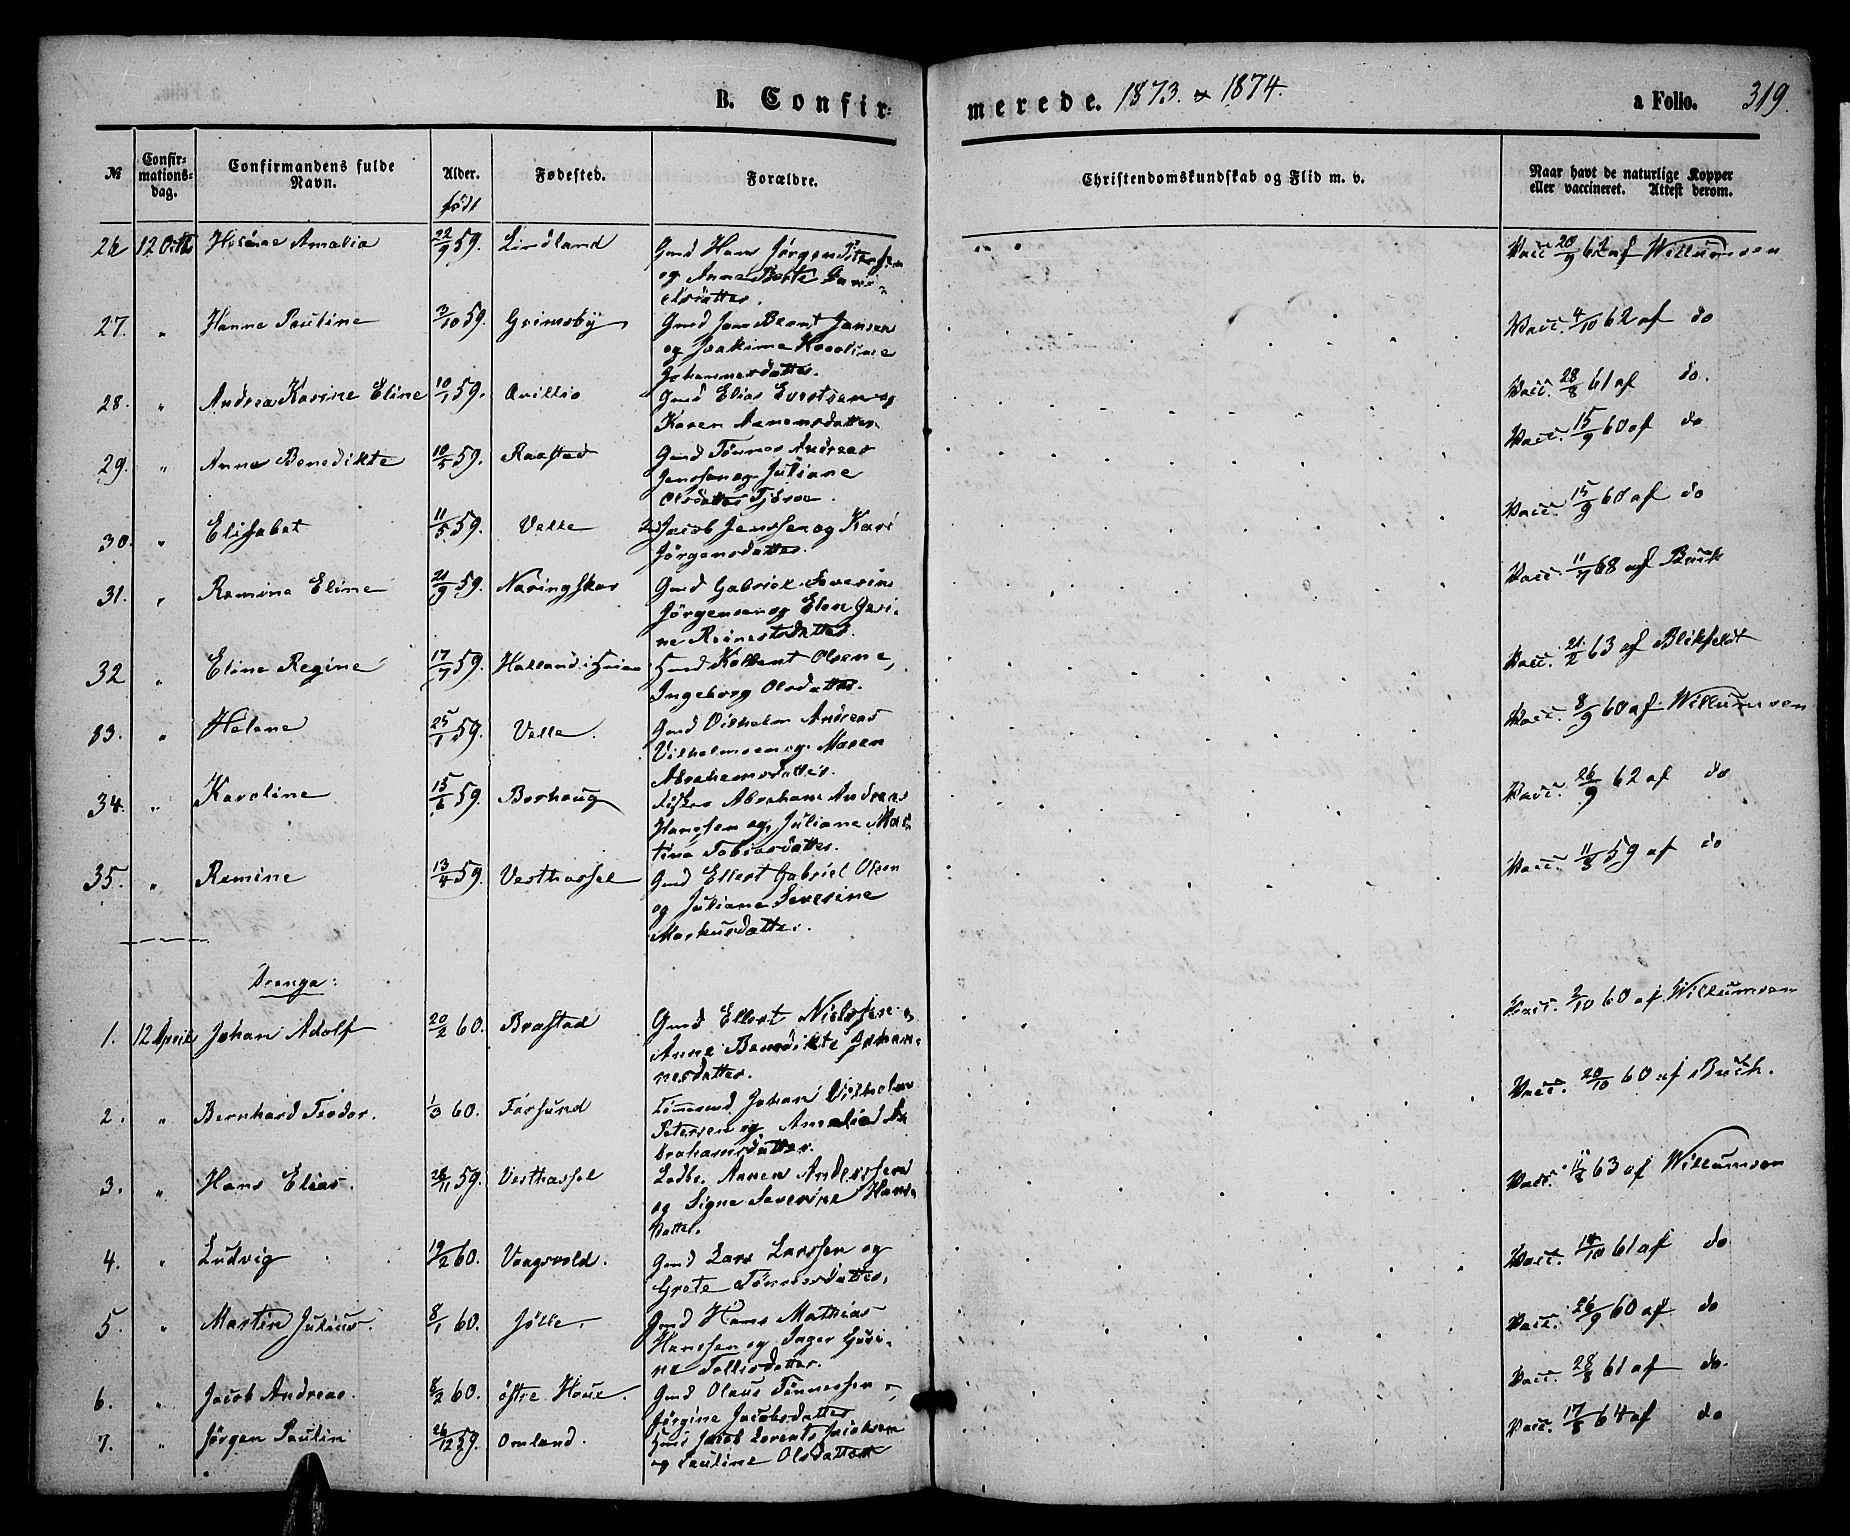 B. Confir: merede. 1873 & 1874. a Folio. 319.
№ Confir: mations: dag. Confirmandens fulde Navn. Alder. Fødested. Forældre. Christendomskundskab og Flid m. v. Naar havt de naturlige Kopper eller vaccineret. Attest derom.
født
26 12 Octb Amalia 22/9 59. Lindland Gmd Hans Jørgen Vacc 20/9 62 af Willumsen
og Anne Berte
27. " Hanne Pauline 3/10 59. Grimsby Gmd Bernt Jansen Vacc. 4/10 62 af do
og Joakime Karoline
Johannesdatter.
28. " Andrea Karine Eline 10/1 59. Qvillio Gmd Elias Evertsen og Vacc. 28/8 61 af do.
Karen Aanensdatter.
29. " Anna Benedikte 10/5 59. Raastad Gmd Tønnes Andreas Vacc. 15/9 60 af do
Jenssen og Juliane
Olsdatter Tjørve.
30. " Elisabet 11/5 59. Velle Jacob Jenssen og Kari Vacc. 15/9 60 af do
Jørgensdatter.
31. " Ramine Eline 21/9 59. Næringskar Gmd Gabriel Severin Vacc. 11/7 68 af Buch
Jørgensen og Elen Geri-
ne Reinertsdatter.
32 " Eline Regine 17/7 59. Halland i Olsen Vacc. 21/2 63 af Blikfeldt
Ingeborg Olsdatter.
33. " Helene 25/1 59. Velle. Gmd Vilhelm Andreas Vacc. 8/9 60 af Willumsen
Vilhelmsen og Maren
Abrahamsdatter.
34. " Karoline 15/6 59. Borhaug Fisker Abraham Andreas Vacc. 26/9 62 af do
Hanssen og Juliane Mar-
tine Tobiasdatter.
35. " Ramine 13/4 59. Vesthassel Gmd Ellert Gabriel Olsen Vacc. 11/8 59 af do
og Juliane Severine
Markusdatter.
Drenge:
1. 12 April Johan Adolf 20/2 60. Brastad Gmd Ellert Nielssen og Vacc. 2/10 60 af Willumsen
Anne Benedikte Johan-
nesdatter.
2. " Bernhard Teodor. 1/3 60. Farsund Tømmermd. Johan Vilhelm Vacc. 20/10 60 af Buch.
Petersen og Amalia A-
brahamsdatter.
3. " Hans Elias. 28/11 59. Vesthassel Andersen Vacc. 63 af Willumsen
og Signe Severine Hans-
datter.
4. " Ludvig 19/2 60. Vaagsvold. Gmd Lars Larssen og Vacc. 14/10 61 af do
Grete Tønnesdatter.
5. " Martin Julius. 8/1 60. Jølle. Gmd Hans Mathias Vacc. 26/9 60 af do
Hanssen og Inger Guri-
ne Tollisdatter.
6. " Jacob Andreas. 8/2 60. østre Haue. Gmd Olaus Tønnessen og Vacc. 28/8 61 af do.
Jørgine Jacobsdatter
7. " Jørgen Paulin 26/12 59. Omland. Jacob Lorents Jacobsen Vacc. 17/8 64 af do
og Pauline Olsdatter